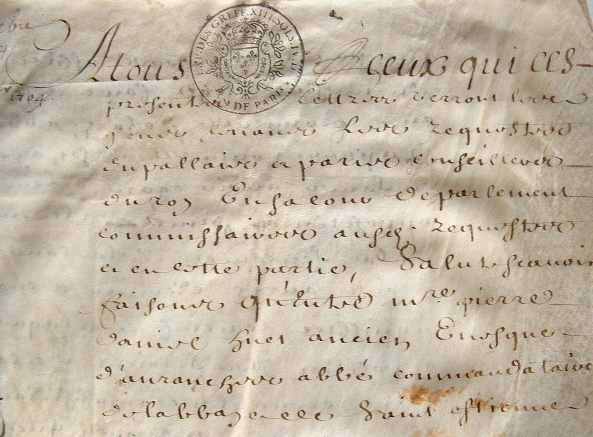 A tous ceux qui ces
1704.
presentes Lettres verront Les
gens tenans Les Requestes
du pallais a paris Conseillers
du Roy En sa cour de parlement
commissaires ausd. Requestes
et en cette partie, Salut scavoir
faisons qu'entre mre pierre
daniel huet ancien Evesque
d'avranches abbé commandataire
de labbaye de Saint estienne
DE PARIS